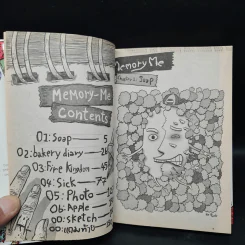 Memory-Me
Contents
01: Soap 5
02: bakery diary 26
03: Fire Kingdom 45
04: Sick 77
05: Photo
06: Apple
00: sketch
Memory Me
Soap